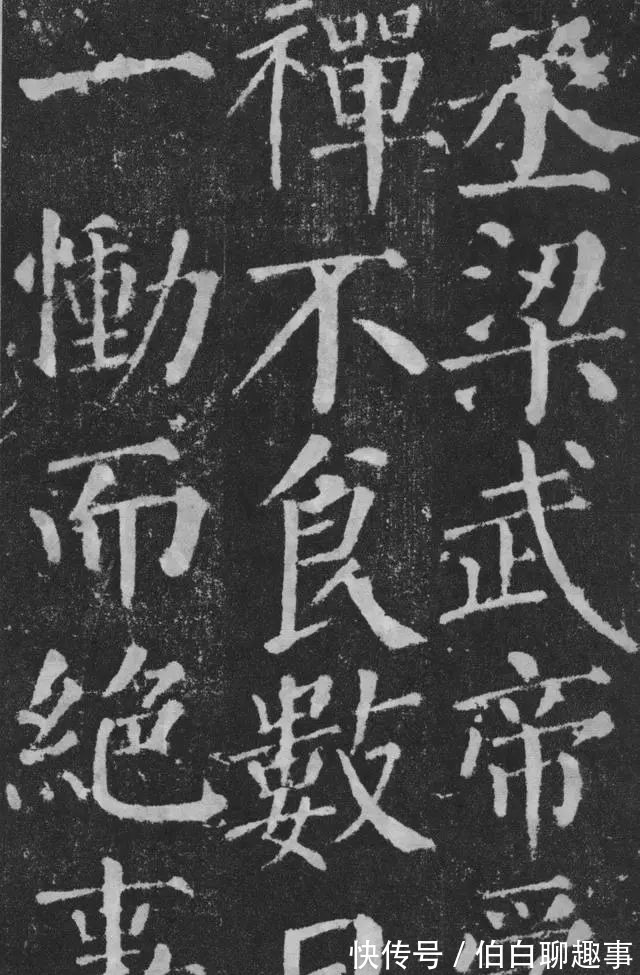 丞梁武帝受
禪不食數日
一慟而絶事
快传号 / 伯白聊趣事